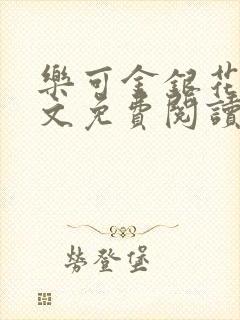 樂可金銀花
文免費閱讀
勞登堡